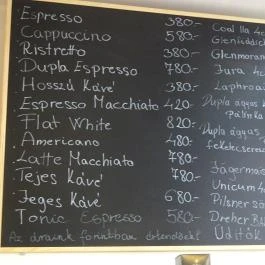 Espresso 380.-
Cappuccino 580.-
Ristretto 380.-
Dupla Espresso 780.-
Hosszú Kávé 380.-
Espresso Macchiato 420.-
Flat White 820.-
Americano 480.-
Latte Macchiato 780.-
Tejes Kávé 780.-
Jeges Kávé 680.-
Tonic Espresso 580.-
Az áraink forintban értendőek!
Glenmoran
Jura
Laphroai
Dupla ágyas
pálinka
Dupla ágyas
feketeseres
Jägermei
Unicum
Pilsner
Dreher
Üdítők